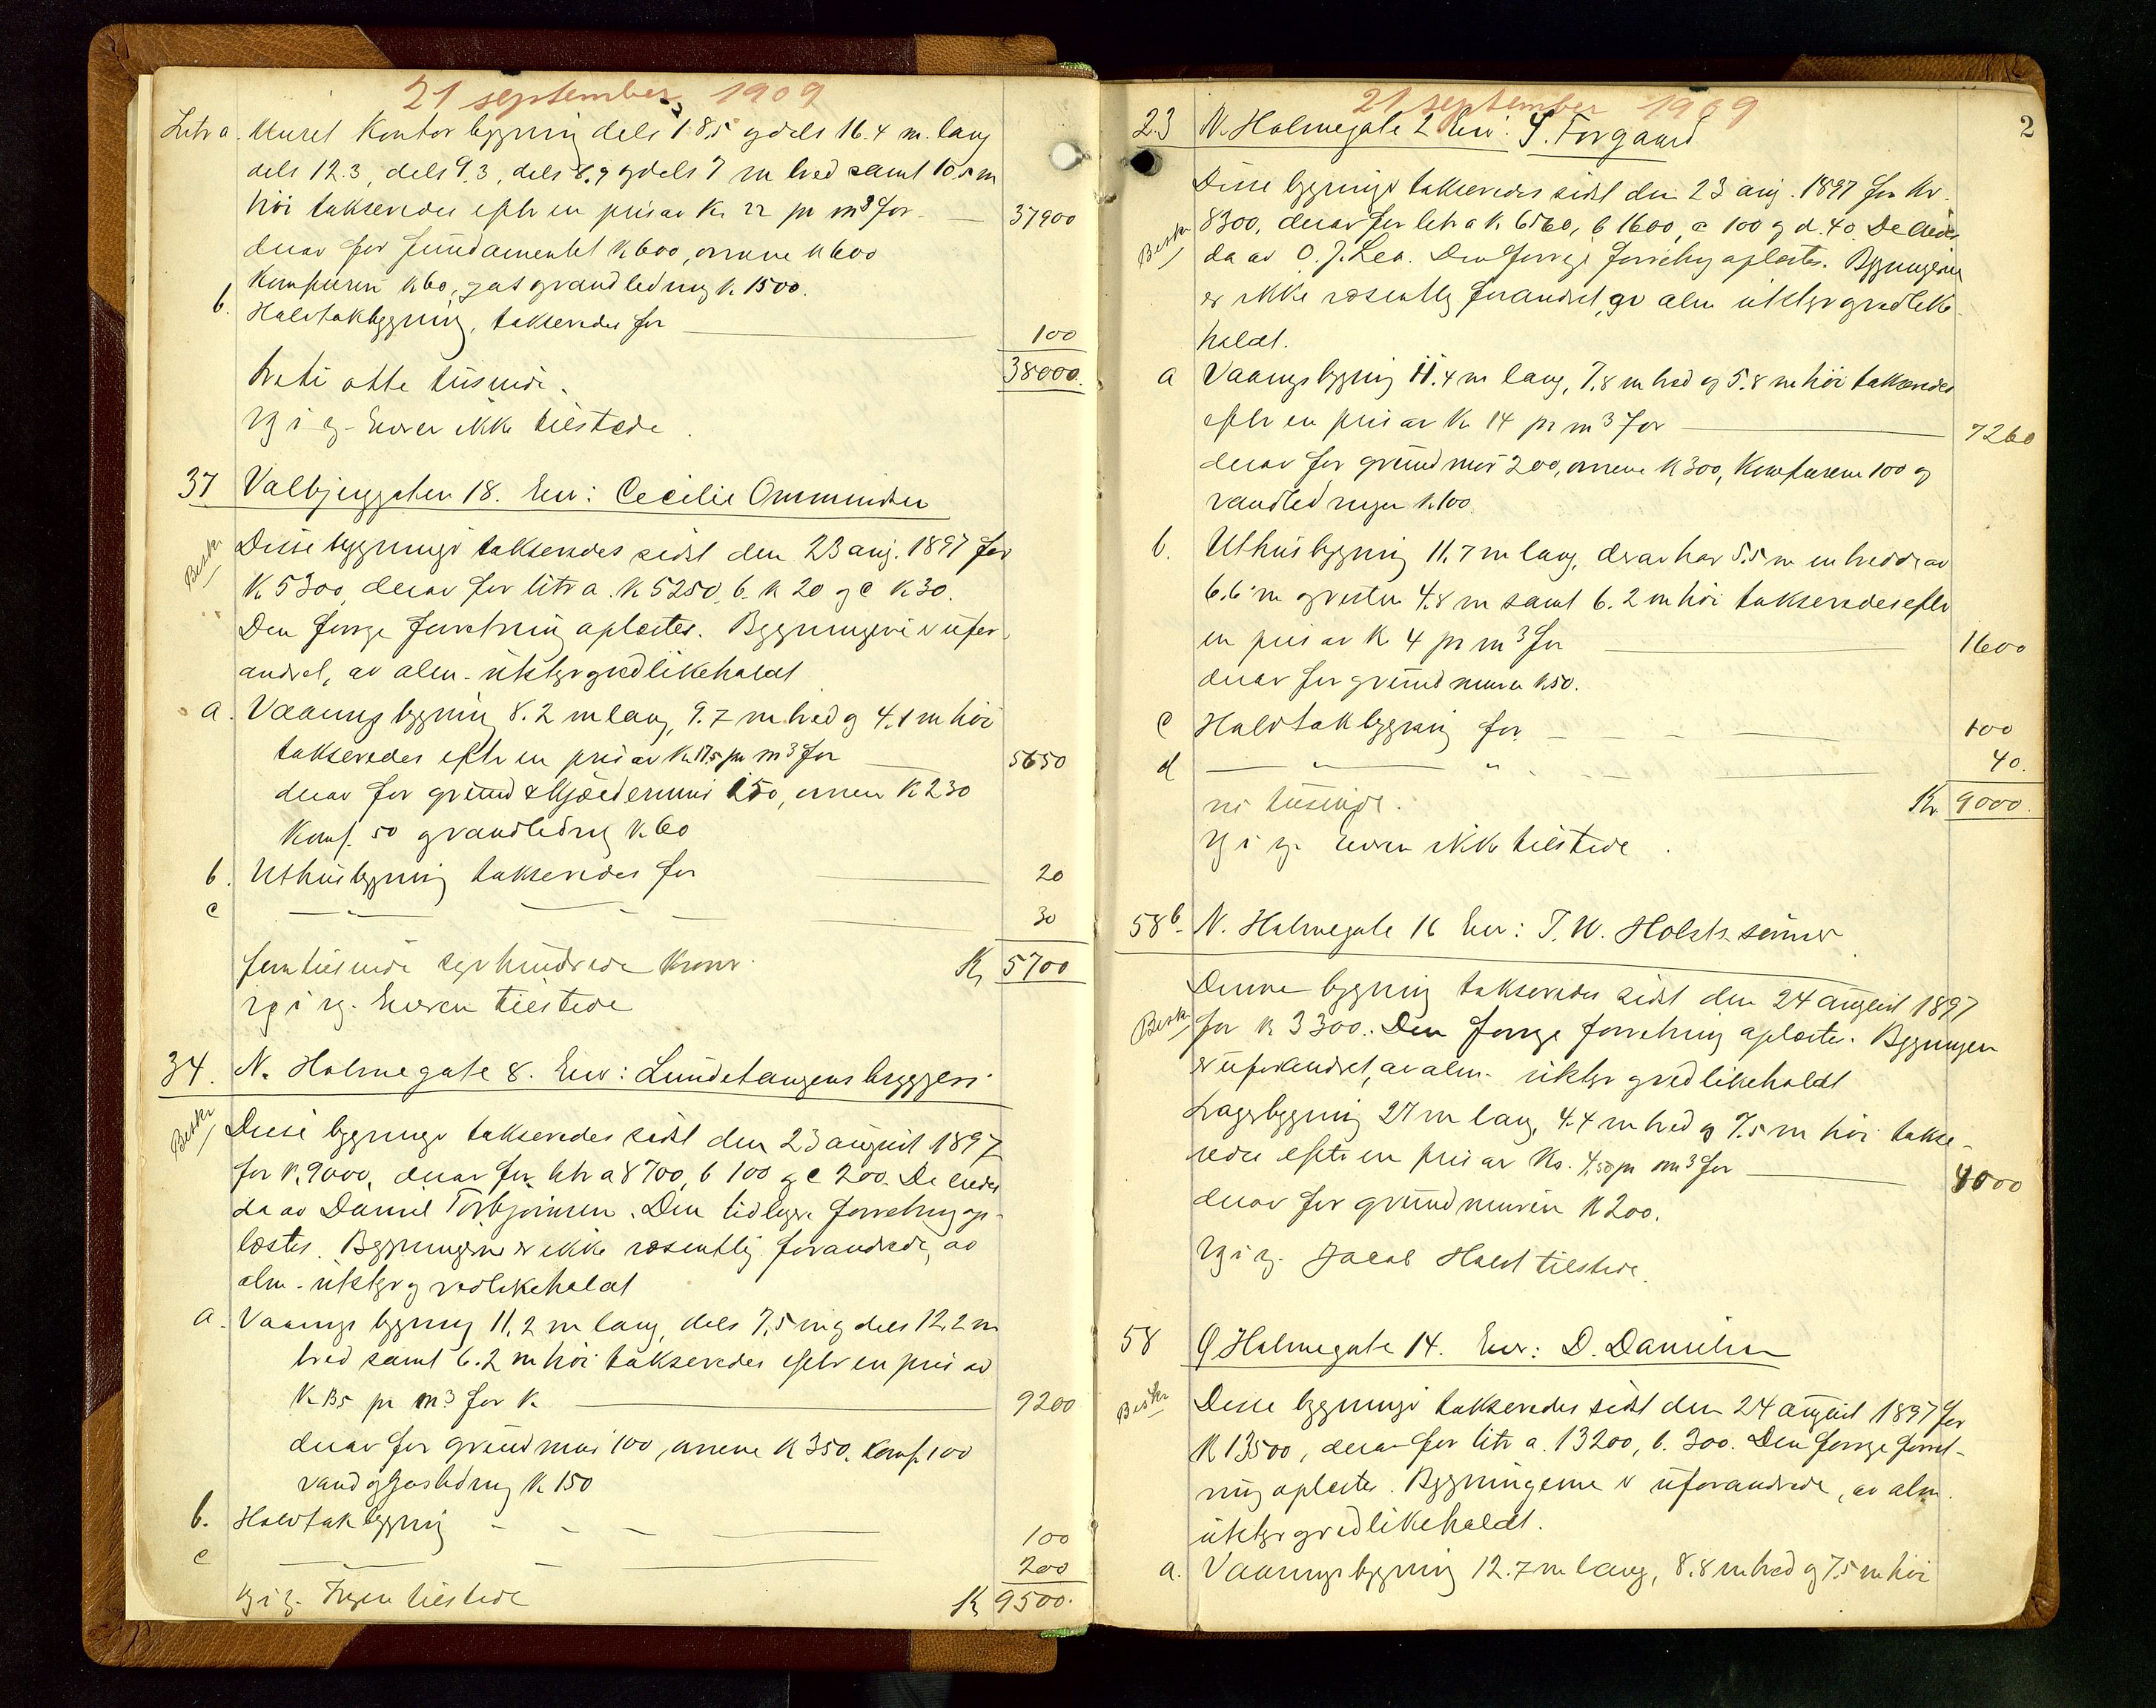 21 september 1909
Litr a. Muret Kontorbygning dels 18.5 og dels 16.4 m. lang
dels 12.3, dels 9.3, dels 8.9 og dels 7 m bred samt 10.5 m
höi takseredes efter en pris av Kr 22 pr m3 for — 37900
derav for fundamentet K 600, ovnene K 600
Komfuren K 60, gas og vandledning K 1500.
b. Halvtakbygning, takseredes for — 100
treti otte tusinde. 38000.
Eieren ikke tilstede.
37 Valbjerggaten 18. Eier: Cecilie Ommundsen
Beskr. Disse bygninger takseredes sidst den 23 aug. 1897 for
K 5300, derav for litr a. K 5250, b. K 20 og c K 30.
Den forrige forretning oplæstes. Bygningerne er ufor-
andret, av alm. utstyr og vedlikeholdt
a. Vaaningsbygning 8.2 m lang, 9.7 m bred og 4.1 m höi
takseredes efter en pris av K 17.5 pr m3 for — 5650
derav for grund & kjældermur 250, ovnen K 230
Komf. 50 og vandledning K 60
b. Uthusbygning takseredes for — 20
c — " — 30
femtusinde syvhundrede kroner. Kr 5700
Eieren tilstede
34. N. Holmegate 8. Eier: Lundetangens bryggeri.
Beskr Disse bygninger takseredes sidst den 23 august 1897
for K. 9000, derav for litr a 8700, b 100 og c 200. De eiedes
da av Daniel Torbjörnsen. Den tidligere forretning op-
læstes. Bygningerne er ikke væsentlig forandrede, av
alm. utstyr og vedlikeholdt
a. Vaaningsbygning 11.2 m lang, dels 7.5 m og dels 12.2 m
bred samt 6.2 m höi takseredes efter en pris av
K 13.5 pr m3 for K. — 9200
derav for grundmur 100, ovnene K 350. Komf. 100
vand og gasledning K 150
b. Halvtakbygning — 100
c — 200
Ingen tilstede Kr 9500.
21 september 1909
2
23 N. Holmegate 2 Eier: S. Torgaard
Disse bygninger takseredes sidst den 23 aug. 1897 for Kr.
Beskr 8300, derav for litr a K. 6560, b 1600, c 100 og d. 40. De eiedes
da av O. J. Lea. Den forrige forretning oplæstes. Bygningerne
er ikke væsentlig forandret, av alm utstyr og vedlike-
holdt.
a Vaaningsbygning 11.4 m lang, 7.8 m bred og 5.8 m höi takseredes
efter en pris av Kr 14 pr m3 for — 7260
derav for grundmur 200, ovnene K 300, Komfurene 100 og
vandledningen K 100.
b. Uthusbygning 11.7 m lang, derav har 5.5 m en bredde av
6.6 m og resten 4.8 m samt 6.2 m höi takseredes efter
en pris av K 4 pr m3 for — 1600
derav for grundmuren K 50.
c Halvtakbygning for — 100
d — " — " — 40.
ni tusinde. Kr 9000.
Eieren ikke tilstede.
58b. N. Holmegate 16 Eier: T. W. Holsts sönner
Denne bygning takseredes sidst den 24 august 1897
Beskr for K 3300. Den forrige forretning oplæstes. Bygningen
er uforandret, av alm. utstyr og vedlikeholdt
Lagerbygning 27 m lang, 4.4 m bred og 7.5 m höi takse-
redes efter en pris av Kr. 4,50 pr m3 for — 4000
derav for grundmuren K 200.
Jacob Holst tilstede.
58 Ö Holmegate 14. Eier: D. Danielsen
Beskr Disse bygninger takseredes sidst den 24 august 1897 for
K 13500, derav for litr a. 13200, b. 300. Den forrige forret-
ning oplæstes. Bygningerne er uforandrede, av alm.
utstyr og vedlikeholdt.
a. Vaaningsbygning 12.7 m lang, 8.8 m bred og 7.5 m höi